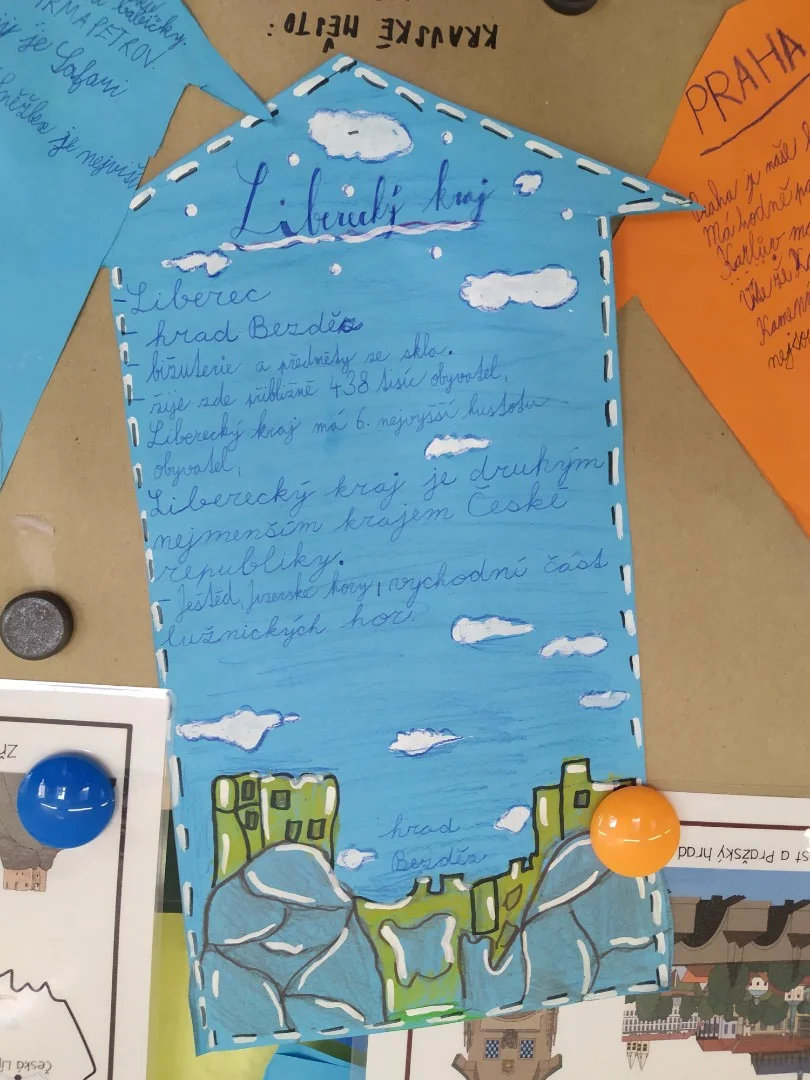 KRAJSKÉ MĚSTO:
babičky.
je Safari
Sněžka je nejvyšší
PRAHA
Praha je naše
Má hodně
Karlův
Víte že
nejs
Liberecký kraj
- Liberec
- hrad Bezděz
- bižuterie a předměty ze skla.
- žije zde přibližně 438 tisíc obyvatel,
Liberecký kraj má 6. nejvyšší hustotu
obyvatel,
Liberecký kraj je druhým
nejmenším krajem České
republiky.
- Ještěd, Jizerské hory, východní část
lužnických hor.
hrad
Bezděz
st a Pražský hrad
Zř
Česká Lí